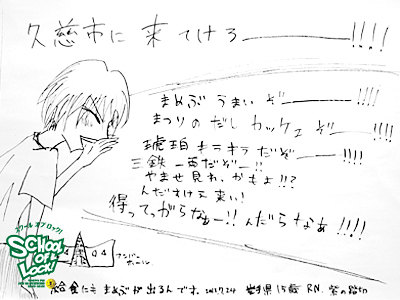 久慈市に来てけろ――!!!!
まめぶうまいぞ――!!!!
まつりのだしカッケェぞ――!!!!
琥珀キラキラだぞ――!!!!
三鉄一両だぞー!!
やませ見れっかもよ!!?
んだすけ来い!
待ってっがらなー!!んだらなぁ!!!!
スクール オブ ロック!
SCHOOL OF LOCK!
04 04
ナンバー
給食にもまめぶが出るんです。
岩手県 15歳 RN.